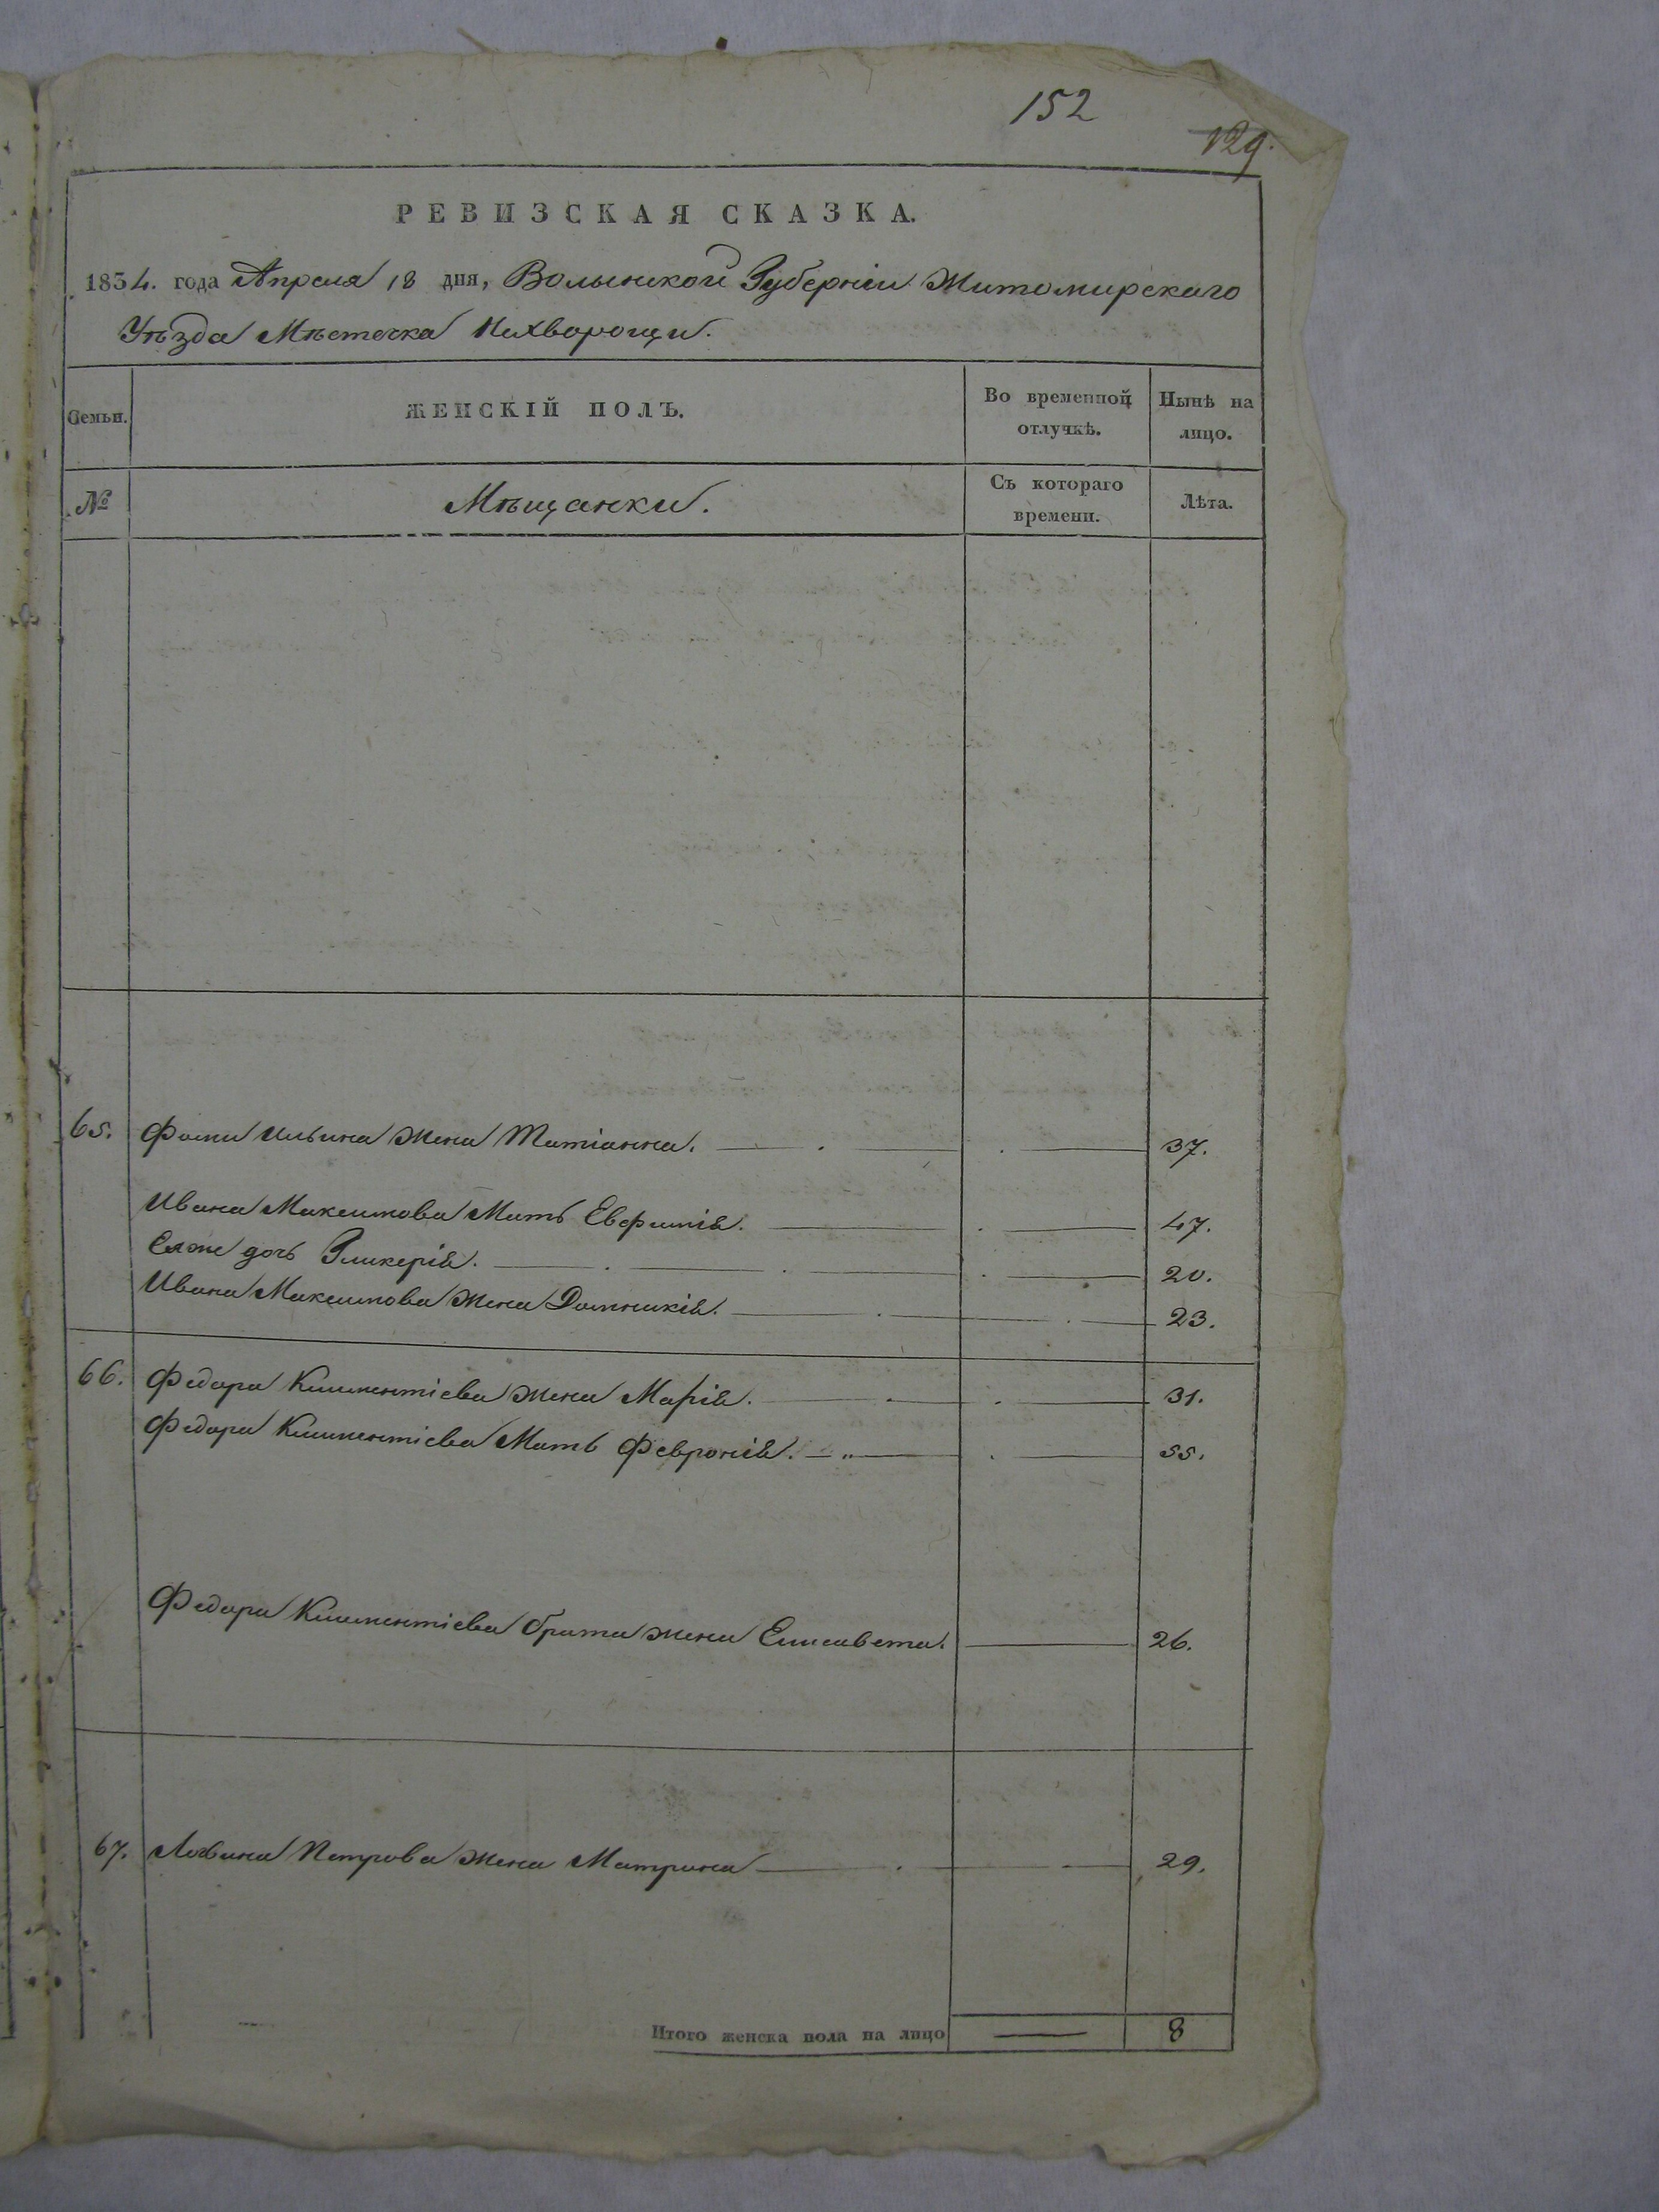 152
129.
РЕВИЗСКАЯ СКАЗКА.
1834. года Апреля 18 дня, Волынской Губерніи Житомирскаго
Уѣзда Мѣстечка Ивхворощи.
Семьи. ЖЕНСКІЙ ПОЛЪ. Во временной отлучкѣ. Нынѣ на лицо.
№ Мѣщанки. Съ котораго времени. Лѣта.
65. Фомы Ильина жена Татіанна. 37.
Ивана Максимова Мать Евфимія. 47.
Ея же дочь Гликерія. 20.
Ивана Максимова жена Домникія. 23.
66. Федора Климентіева жена Марія. 31.
Федора Климентіева Мать Февронія. 55.
Федора Климентіева брата жена Елисавета. 26.
67. Логвина Петрова жена Матрина 29.
Итого женска пола на лицо — 8